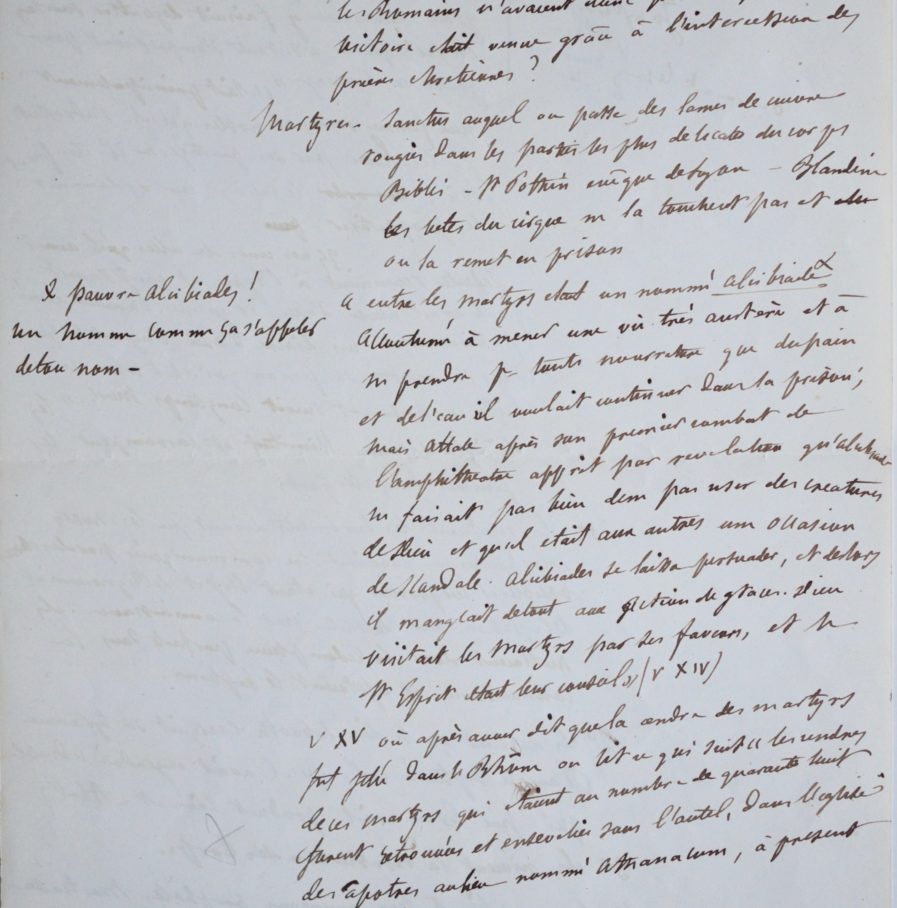 les Romains n'avaient donc
victoire était venue grâce à l'intercession des
prières chretiennes ?
Martyrs - Sanctus auquel on passe des lames de cuivre
rougies dans les parties les plus delicates du corps
Biblis - St Pothin evêque de Lyon - Blandine
les betes du cirque ne la touchent pas et
on la remet en prison
entre les martyrs etait un nommé alcibiade
accoutumé à mener une vie très austère et à
ne prendre pr toute nourriture que du pain
et de l'eau il voulait continuer dans la prison,
mais attale après son premier combat de
l'amphitheatre apprit par revelation qu'alcibiade
ne faisait pas bien de ne pas user des creatures
de Dieu et qu'il etait aux autres une occasion
de scandale. alcibiades se laissa persuader, et des lors
il mangeait de tout aux action de graces. Dieu
visitait les martyrs par ses faveurs, et le
St Esprit etait leur conseil » (V XIV)
pauvre alcibiades !
un homme comme ça s'appeler
de ton nom -
V XV où après avoir dit que la cendre des martyrs
fut jetée dans le Rhône on lit ce qui suit « les cendres
de ces martyrs qui etaient au nombre de quarante huit
furent retrouvées et ensevelies sous l'autel, dans l'eglise
des apotres au lieu nommé Athanacum, à present